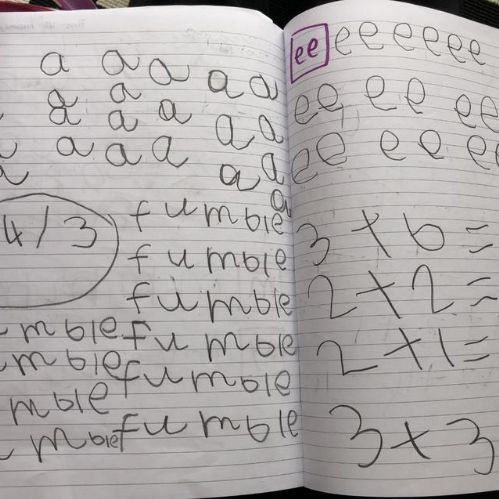 a a a a a
a a a a a a
a a a a a
a
a
4/3
fumble
fumble
fumble
mble fumble
mble fumble
mble
mble fumble
ee ee ee ee
ee ee ee
ee ee ee
3+6=
2+2=
2+1=
3+3